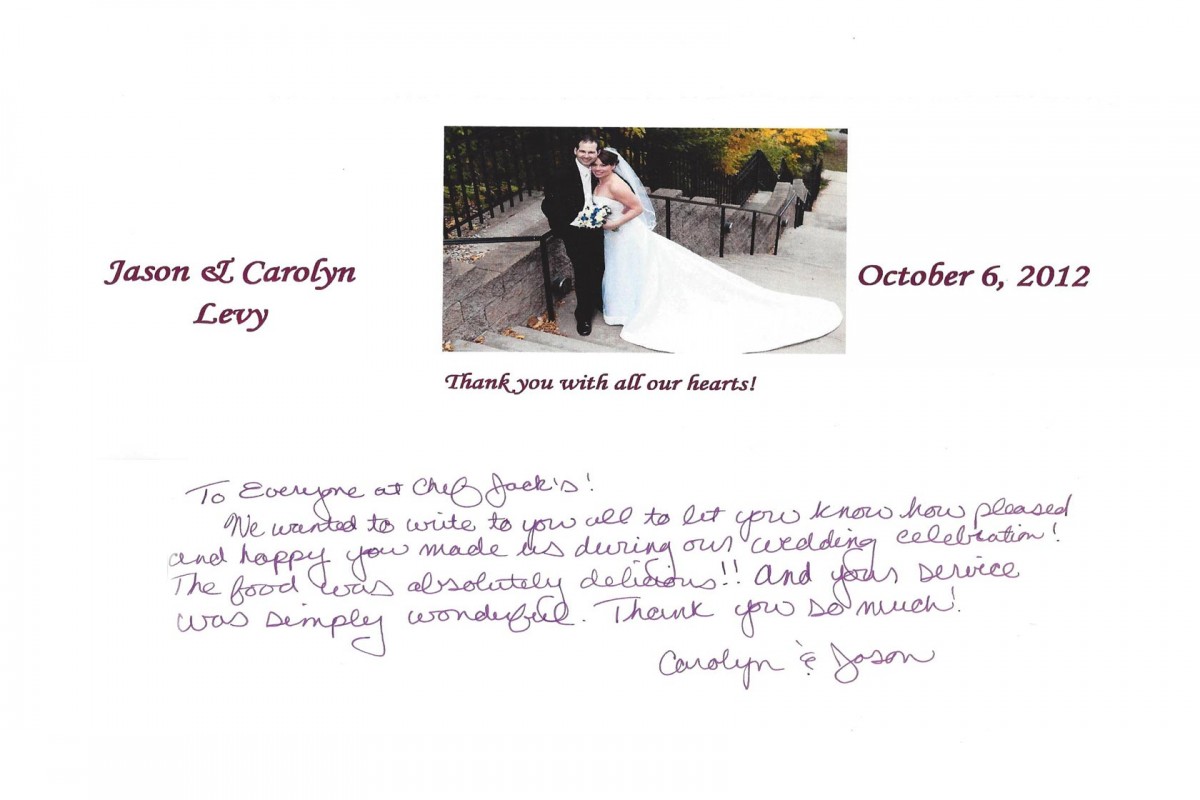 Jason & Carolyn
Levy
October 6, 2012
Thank you with all our hearts!
To Everyone at Chef Jack's!
We wanted to write to you all to let you know how pleased
and happy you made us during our wedding celebration!
The food was absolutely delicious!! And your service
was simply wonderful. Thank you so much!
Carolyn & Jason